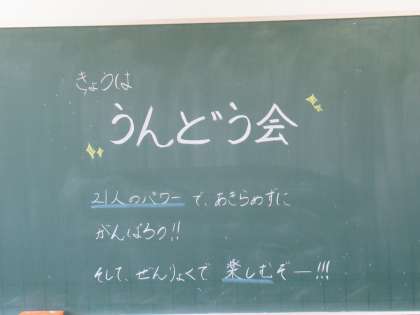 きょうは
うんどう会
21人のパワーで、あきらめずに
がんばろう!!
そして、ぜんりょくで楽しむぞー!!!